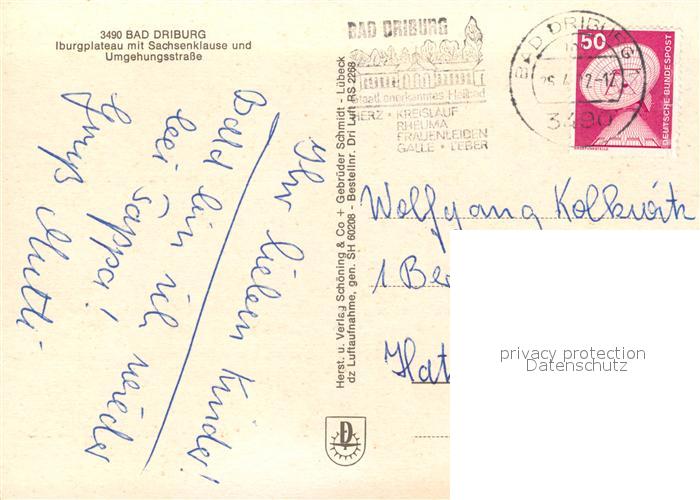 3490 BAD DRIBURG
Iburgplateau mit Sachsenklause und
Umgehungsstraße
Ihr lieben Kinder!
Bald bin ich wieder
bei Pappa!
Gruß Mutti
Herst. u. Verlag Schöning & Co + Gebrüder Schmidt - Lübeck
dz Luftaufnahme, gen. SH 60208 - Bestellnr. Dri Luft RS 2268
BAD DRIBURG
Staatl. anerkanntes Heilbad
HERZ · KREISLAUF
RHEUMA
FRAUENLEIDEN
GALLE · LEBER
BAD DRIBURG
3490
50
DEUTSCHE BUNDESPOST
Wolfgang
1 Ber
Hat
privacy protection
Datenschutz